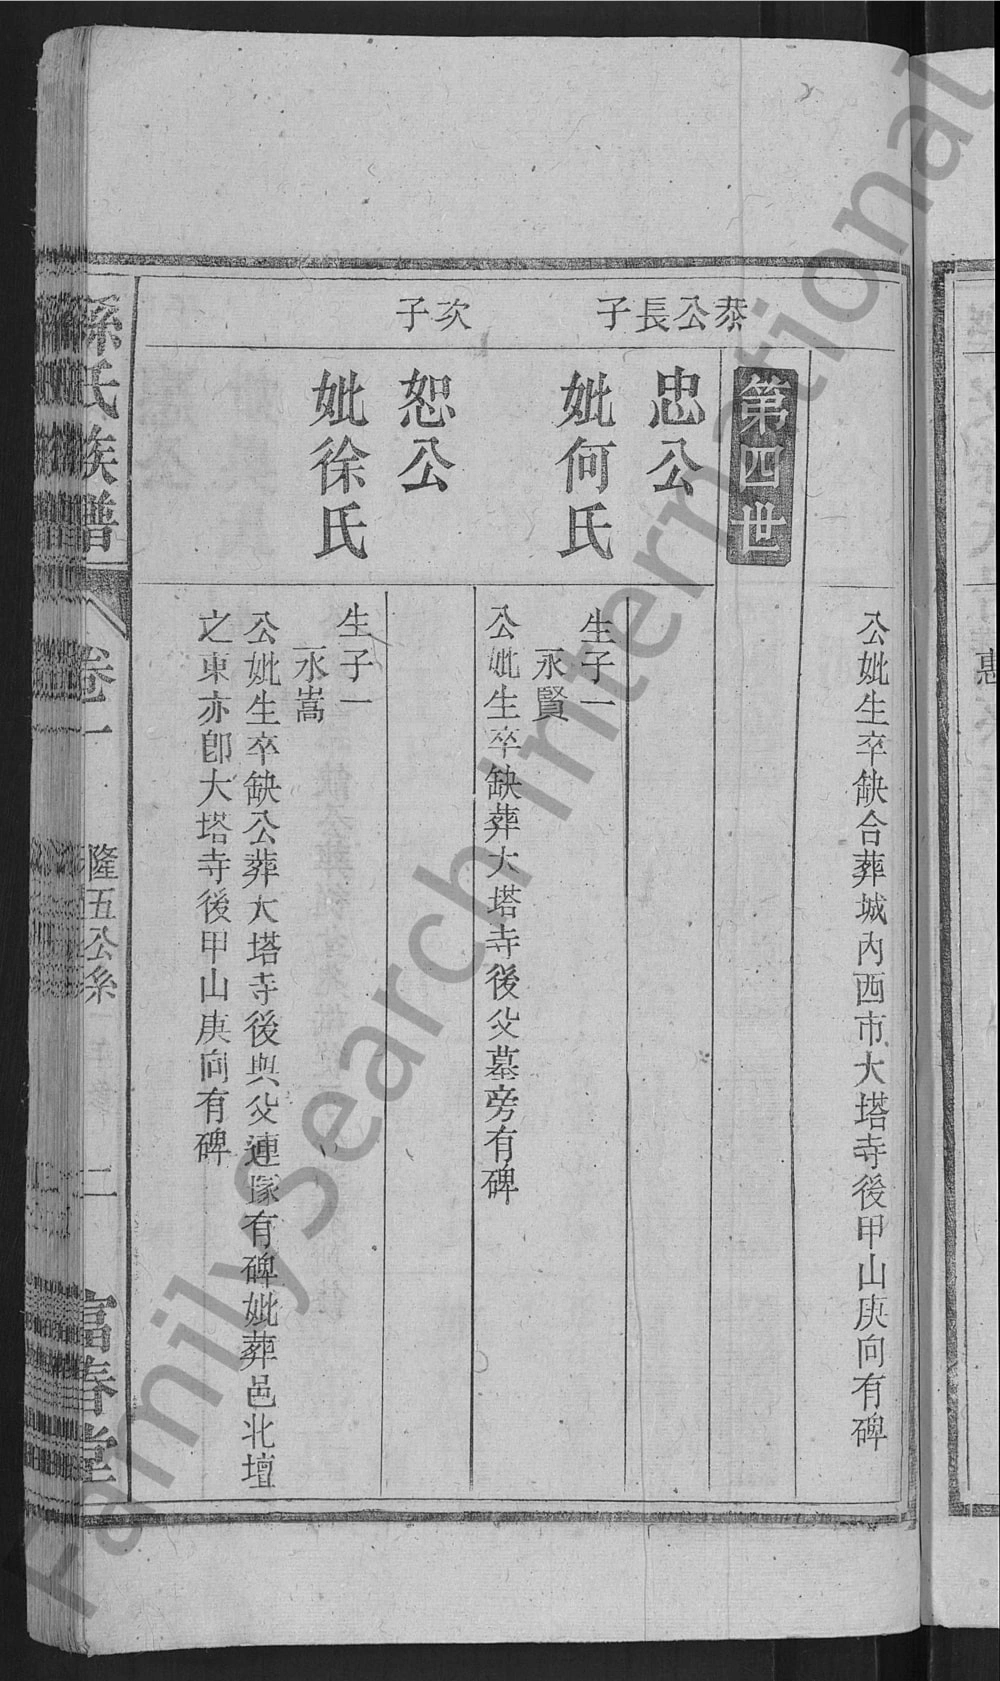 公妣生卒缺合葬城內西市大塔寺後甲山庚向有碑
第四世
泰公長子
忠公
妣何氏
生子一
永賢
公妣生卒缺葬大塔寺後父墓旁有碑
次子
恕公
妣徐氏
生子一
永嵩
公妣生卒缺公葬大塔寺後與父連塚有碑妣葬邑北壇
之東亦卽大塔寺後甲山庚向有碑
孫氏族譜
卷一
隆五公系
二
富春堂
FamilySearch International